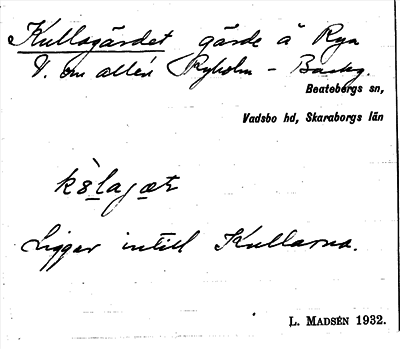 Kullagärdet gärde å Ryn
V. om allén Ryholm – Backg.
Beatebergs sn,
Vadsbo hd, Skaraborgs län
Ligger intill Kullarna.
L. MADSÉN 1932.